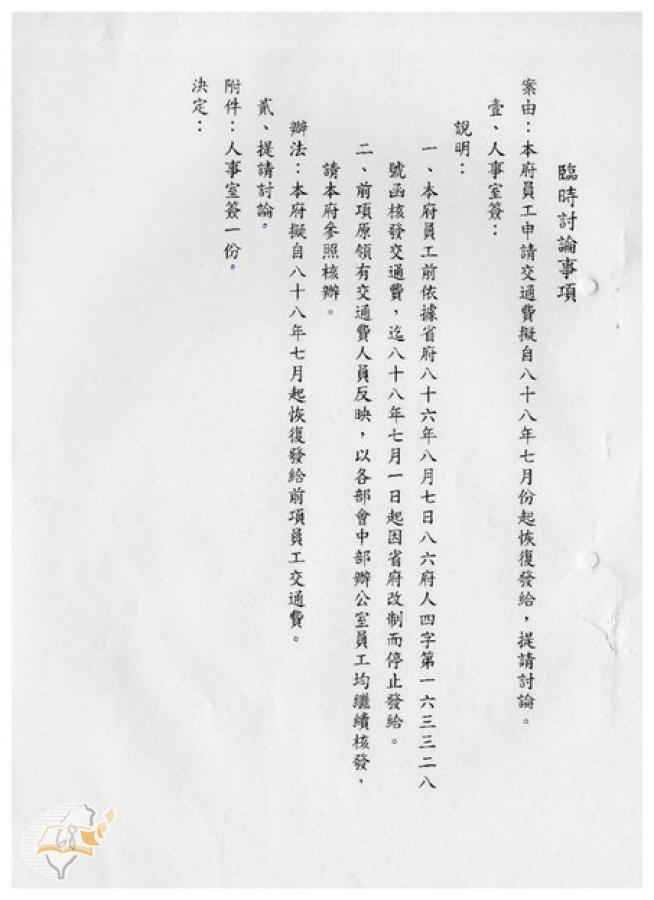 臨時討論事項
案由：本府員工申請交通費擬自八十八年七月份起恢復發給，提請討論。
壹、人事室簽：
說明：
一、本府員工前依據省府八十六年八月七日八六府人四字第一六三三二八
號函核發交通費，迄八十八年七月一日起因省府改制而停止發給。
二、前項原領有交通費人員反映，以各部會中部辦公室員工均繼續核發，
請本府參照核辦。
辦法：本府擬自八十八年七月起恢復發給前項員工交通費。
貳、提請討論。
附件：人事室簽一份。
決定：
68